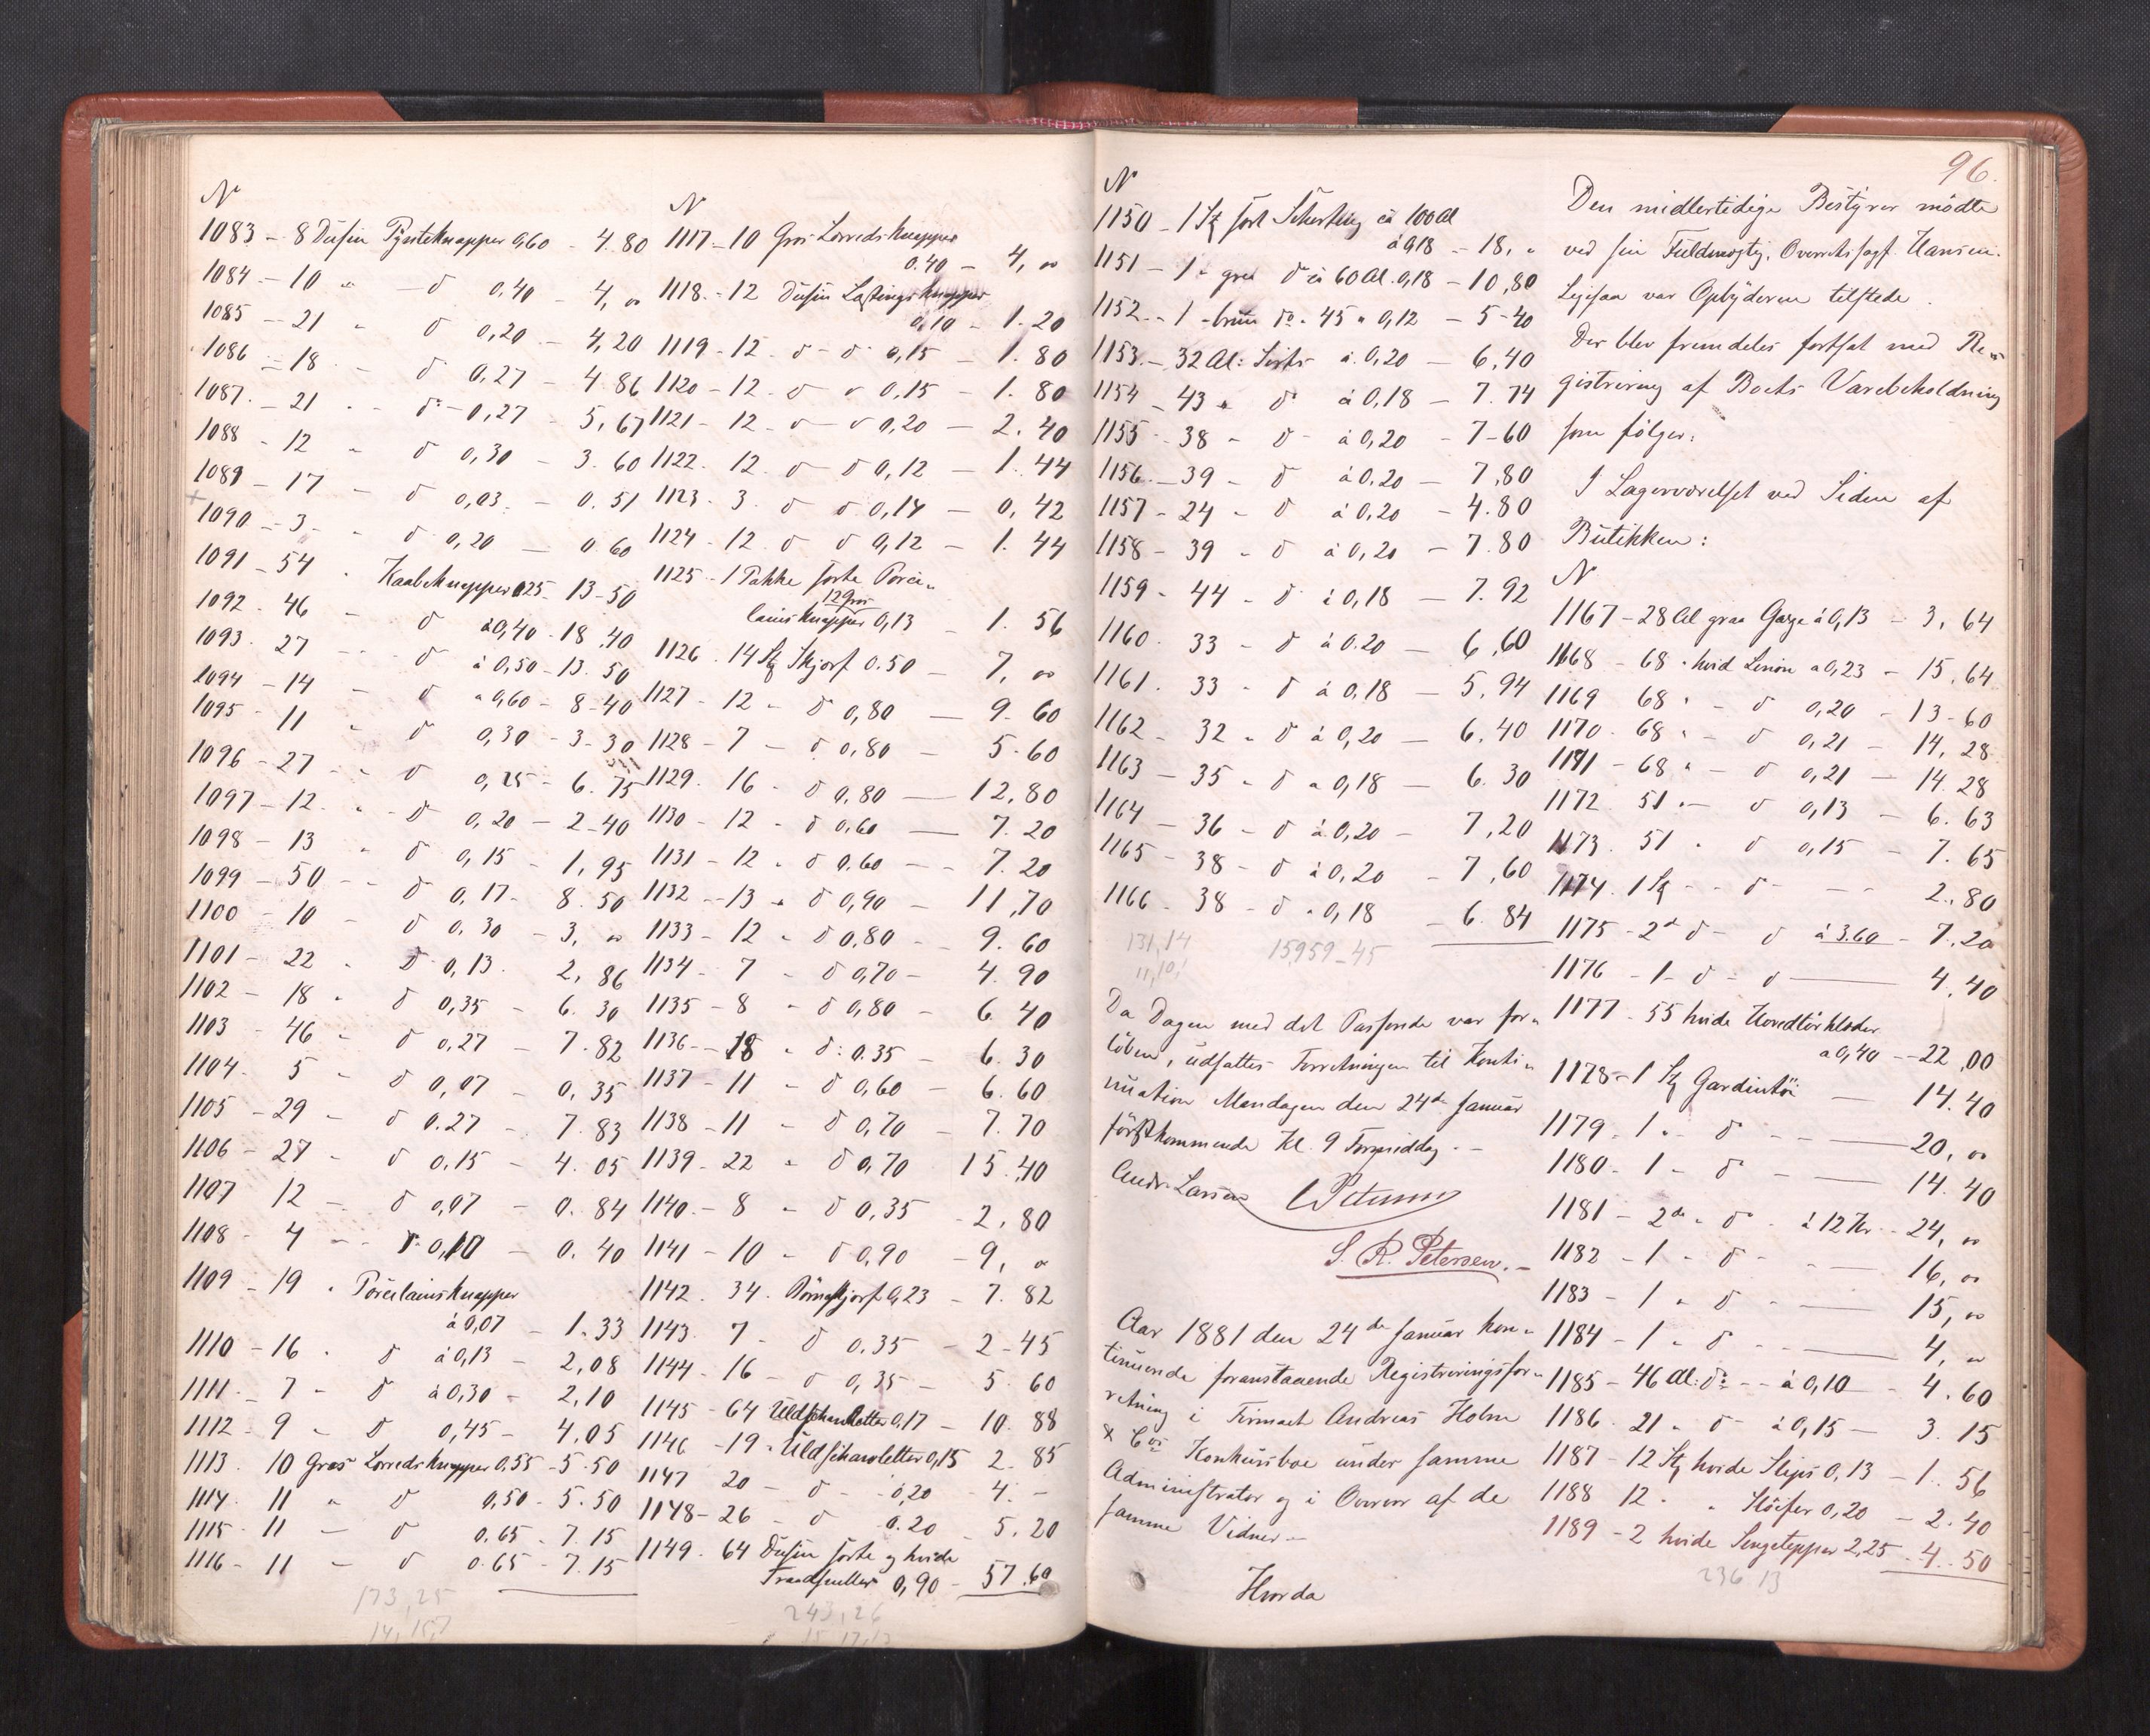 N
1083 - 8 Dusin Pynteknapper 0,60 - 4.80
1084 - 10 " - d 0,40 - 4, 00
1085 - 21 - d 0,20 - 4,20
1086 - 18 - d 0,27 - 4.86
1087 - 21 - d - 0,27 - 5,67
1088 - 12 - d 0,30 - 3.60
1089 - 17 - d 0,03 - 0.51
1090 - 3 - d 0,20 - 0.60
1091 - 54 " Kaabeknapper 0,25 - 13-50
1092 - 46 - d à 0,40 - 18,40
1093 - 27 - d à 0,50 - 13.50
1094 - 14 - d à 0,60 - 8-40
1095 - 11 " d 0,30 - 3-30
1096 - 27 - d 0,25 - 6.75
1097 - 12 - d 0,20 - 2-40
1098 - 13 " d 0,15 - 1,95
1099 - 50 - d 0,17 - 8.50
1100 - 10 - d 0.30 - 3, 00
1101 - 22 - d 0,13 - 2,86
1102 - 18 - d 0,35 - 6.30
1103 - 46 - d 0,27 - 7.82
1104 - 5 - d 0,07 - 0,35
1105 - 29 - d 0.27 - 7.83
1106 - 27 - d 0,15 - 4.05
1107 12 - d 0,07 - 0.84
1108 - 4 - d 0,10 - 0.40
1109 - 19 " Porcelainsknapper
à 0,07 - 1.33
1110 - 16 " d à 0,13 - 2,08
1111 - 7 - d à 0,30 - 2,10
1112 - 9 - d 0,45 - 4.05
1113 - 10 Gros Lærredsknapper 0.55 - 5.50
1114 - 11 " d 0,50 - 5.50
1115 - 11 - d 0.65 - 7.15
1116 - 11 - d 0.65 - 7.15
173,25
N
1117 - 10 Gros Lærredsknapper
0.40 - 4, 00
1118 - 12 Dusin Lastingsknapper
0,10 - 1.20
1119 - 12 - d - d 0,15 - 1.80
1120 - 12 - d d 0,15 - 1.80
1121 - 12 - d - d 0,20 - 2.40
1122 - 12 - d d 0,12 - 1.44
1123 - 3 - d d 0,14 - 0,42
1124 - 12 - d d 0,12 - 1.44
1125 - 1 Pakke sorte Porce-
12 Gros
lainsknapper 0,13 - 1.56
1126 - 14 Stk Skjorf 0.50 - 7, 00
1127 - 12 - d 0,80 - 9-60
1128 - 7 - d 0,80 - 5-60
1129 - 16 - d 0,80 - 12,80
1130 - 12 - d 0,60 - 7.20
1131 - 12 - d 0.60 - 7.20
1132 - 13 - d 0,90 - 11,70
1133 - 12 - d 0,80 - 9.60
1134 - 7 - d 0,70 - 4.90
1135 - 8 - d 0,80 - 6.40
1136 - 18 - d 0.35 - 6.30
1137 - 11 - d 0,60 - 6.60
1138 - 11 - d 0,70 - 7.70
1139 - 22 - d 0,70 15.40
1140 - 8 - d 0,35 - 2,80
1141 - 10 - d 0,90 - 9,
1142 - 34 - Børneskjorf 0,23 - 7.82
1143 - 7 - d 0.35 - 2-45
1144 - 16 - d 0,35 - 5.60
1145 - 64 Uldschavletter 0,17 - 10.88
1146 - 19 - Uldschawletter 0,15 2.85
1147 20 - d - 0,20 - 4. -
1148 - 26 - d 0.20 - 5.20
1149 - 64 Dusin sorte og hvide
Traadsnellar 0,90 - 57.60
243,26
N
1150 - 1 Stk sort Schirting ca 100 Al
à 0,18 - 18, "
1151 - 1 " graa d ca 60 Al. 0,18 - 10,80
1152 - 1 - brun do - 45 " 0,12 - 5-40
1153 - 32 Al: Sirts à 0,20 - 6,40
1154 - 43 " d à 0,18 - 7.74
1155 - 38 - d - à 0,20 - 7-60
1156 - 39 - d à 0.20 - 7,80
1157 - 24 - d à 0,20 - 4.80
1158 - 39 - d à 0,20 - 7.80
1159 - 44 - d à 0,18 - 7.92
1160 - 33 - d à 0.20 - 6,60
1161 - 33 - d à 0,18 - 5,94
1162 - 32 - d à 0,20 - 6.40
1163 - 35 - d à 0,18 - 6.30
1164 - 36 - d à 0,20 - 7,20
1165 - 38 - d à 0,20 - 7,60
1166 - 38 - d à 0,18 - 6.84
131,14 15959-45
Da Dagen med det Passerede var for-
løben, udsattes Forretningen til Konti-
nuation Mandagen den 24de Januar
førstkommende Kl. 9 Formiddag.-
Andr. Larsen CPetersen
S. R. Petersen.-
Aar 1881 den 24de Januar kon-
tinuerede foranstaaende Registreringsfor-
retning i Firmaet Andreas Holm
& Cos Konkursboe under samme
Administrator og i Overvær af de
samme Vidner -
Hvorda
96.
Den midlertidige Bestyrer mødte
ved sin Fuldmægtig, Overretssagf. Hansen.
Ligesaa var Opbyderen tilstede.
Der blev fremdeles fortsat med Re-
gistrering af Boets Varebeholdning
som følger:
I Lagerværelset ved Siden af
Butikken:
N
1167 - 28 Al graa Gaze à 0,13 - 3,64
1168 - 68 " hvid Linon à 0,23 - 15,64
1169 68 " - d 0,20 - 13-60
1170 - 68 " - d 0,21 - 14,28
1171 - 68 " - d 0,21 - 14.28
1172 51 " - d 0,13 - 6.63
1173 - 51 " d 0,15 - 7.65
1174 - 1 Stk - - d - - - 2.80
1175 - 2 d d - d à 3.60 - 7.20
1176 - 1 - d - d - 4.40
1177 - 55 hvide Hovedtørklæder
à 0,40 - 22,00
1178 - 1 Stk Gardintøi - 14.40
1179 - 1 " - d - - 20, 00
1180 - 1 - d - 14.40
1181 - 2de " do - à 12 Kr - 24, 00
1182 - 1 - d - - 16, 00
1183 - 1 " d - - 15, 00
1184 - 1 " d - - 4, 00
1185 - 46 Al: do - - à 0,10 - 4.60
1186 - 21 " d - à 0,15 - 3.15
1187 - 12 Stk hvide Slips 0,13 - 1.56
1188 12 " " 0,20 - 2.40
1189 - 2 hvide Sengetepper 2,25 - 4.50
236 13